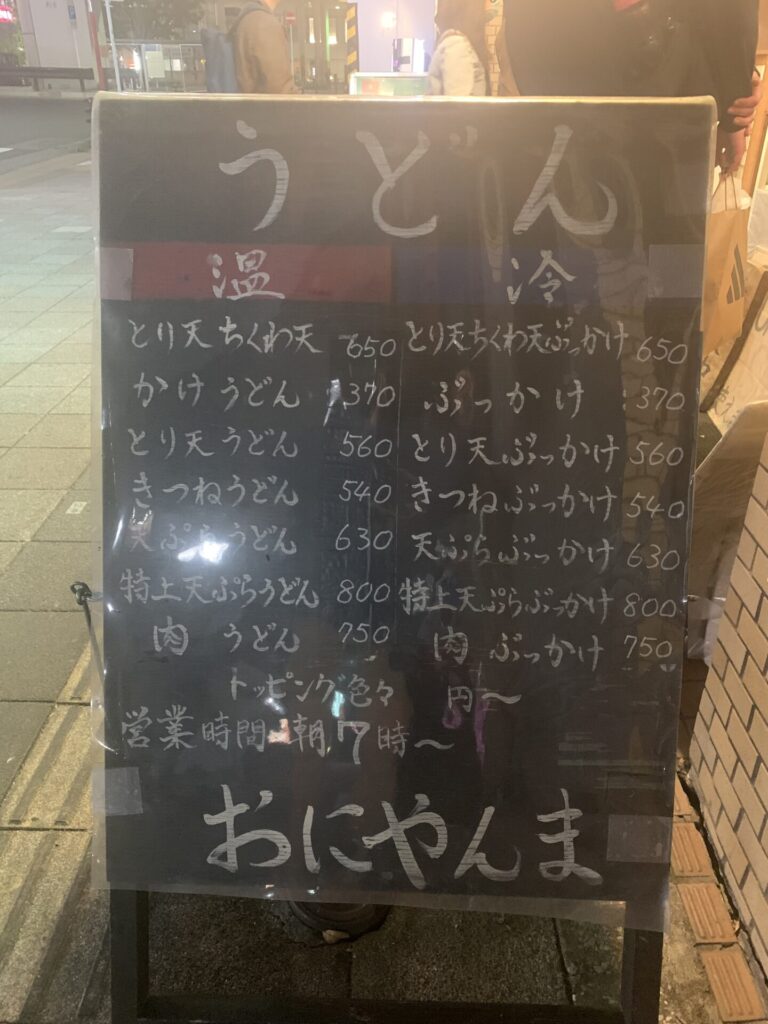 うどん
温 冷
とり天ちくわ天 650 とり天ちくわ天ぶっかけ 650
かけうどん 370 ぶっかけ 370
とり天うどん 560 とり天ぶっかけ 560
きつねうどん 540 きつねぶっかけ 540
天ぷらうどん 630 天ぷらぶっかけ 630
特上天ぷらうどん 800 特上天ぷらぶっかけ 800
肉うどん 750 肉ぶっかけ 750
トッピング色々 円～
営業時間 朝7時～
おにやんま